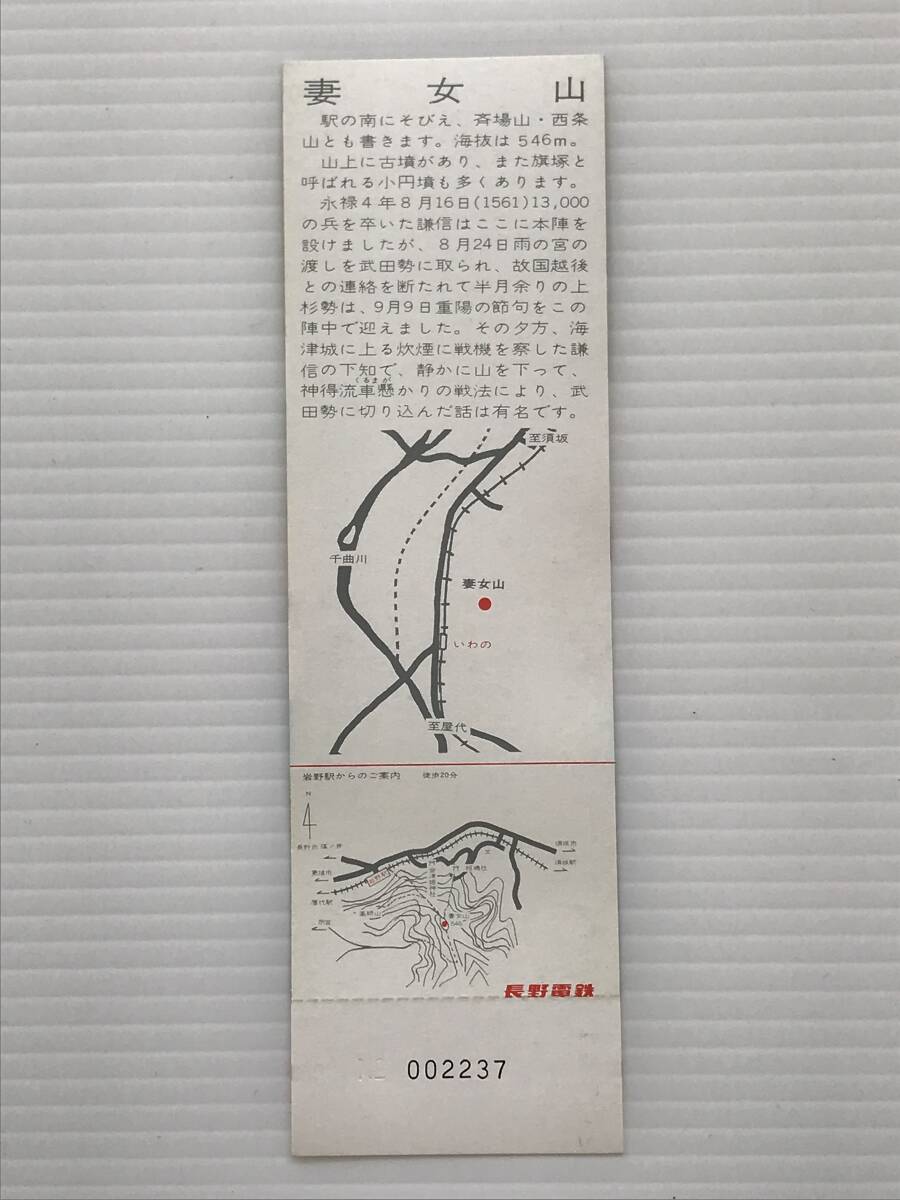 妻女山
駅の南にそびえ、斉場山・西条
山とも書きます。海抜は546m。
山上に古墳があり、また旗塚と
呼ばれる小円墳も多くあります。
永禄4年8月16日(1561)13,000
の兵を卒いた謙信はここに本陣を
設けましたが、8月24日雨の宮の
渡しを武田勢に取られ、故国越後
との連絡を断たれて半月余りの上
杉勢は、9月9日重陽の節句をこの
陣中で迎えました。その夕方、海
津城に上る炊煙に戦機を察した謙
信の下知で、静かに山を下って、
くるまが
神得流車懸かりの戦法により、武
田勢に切り込んだ話は有名です。
至須坂
千曲川
妻女山
いわの
至屋代
岩野駅からのご案内 徒歩20分
N
須坂市
須坂駅
更埴市
屋代駅
岩野駅
薬師山
妻女山
546
長野電鉄
002237